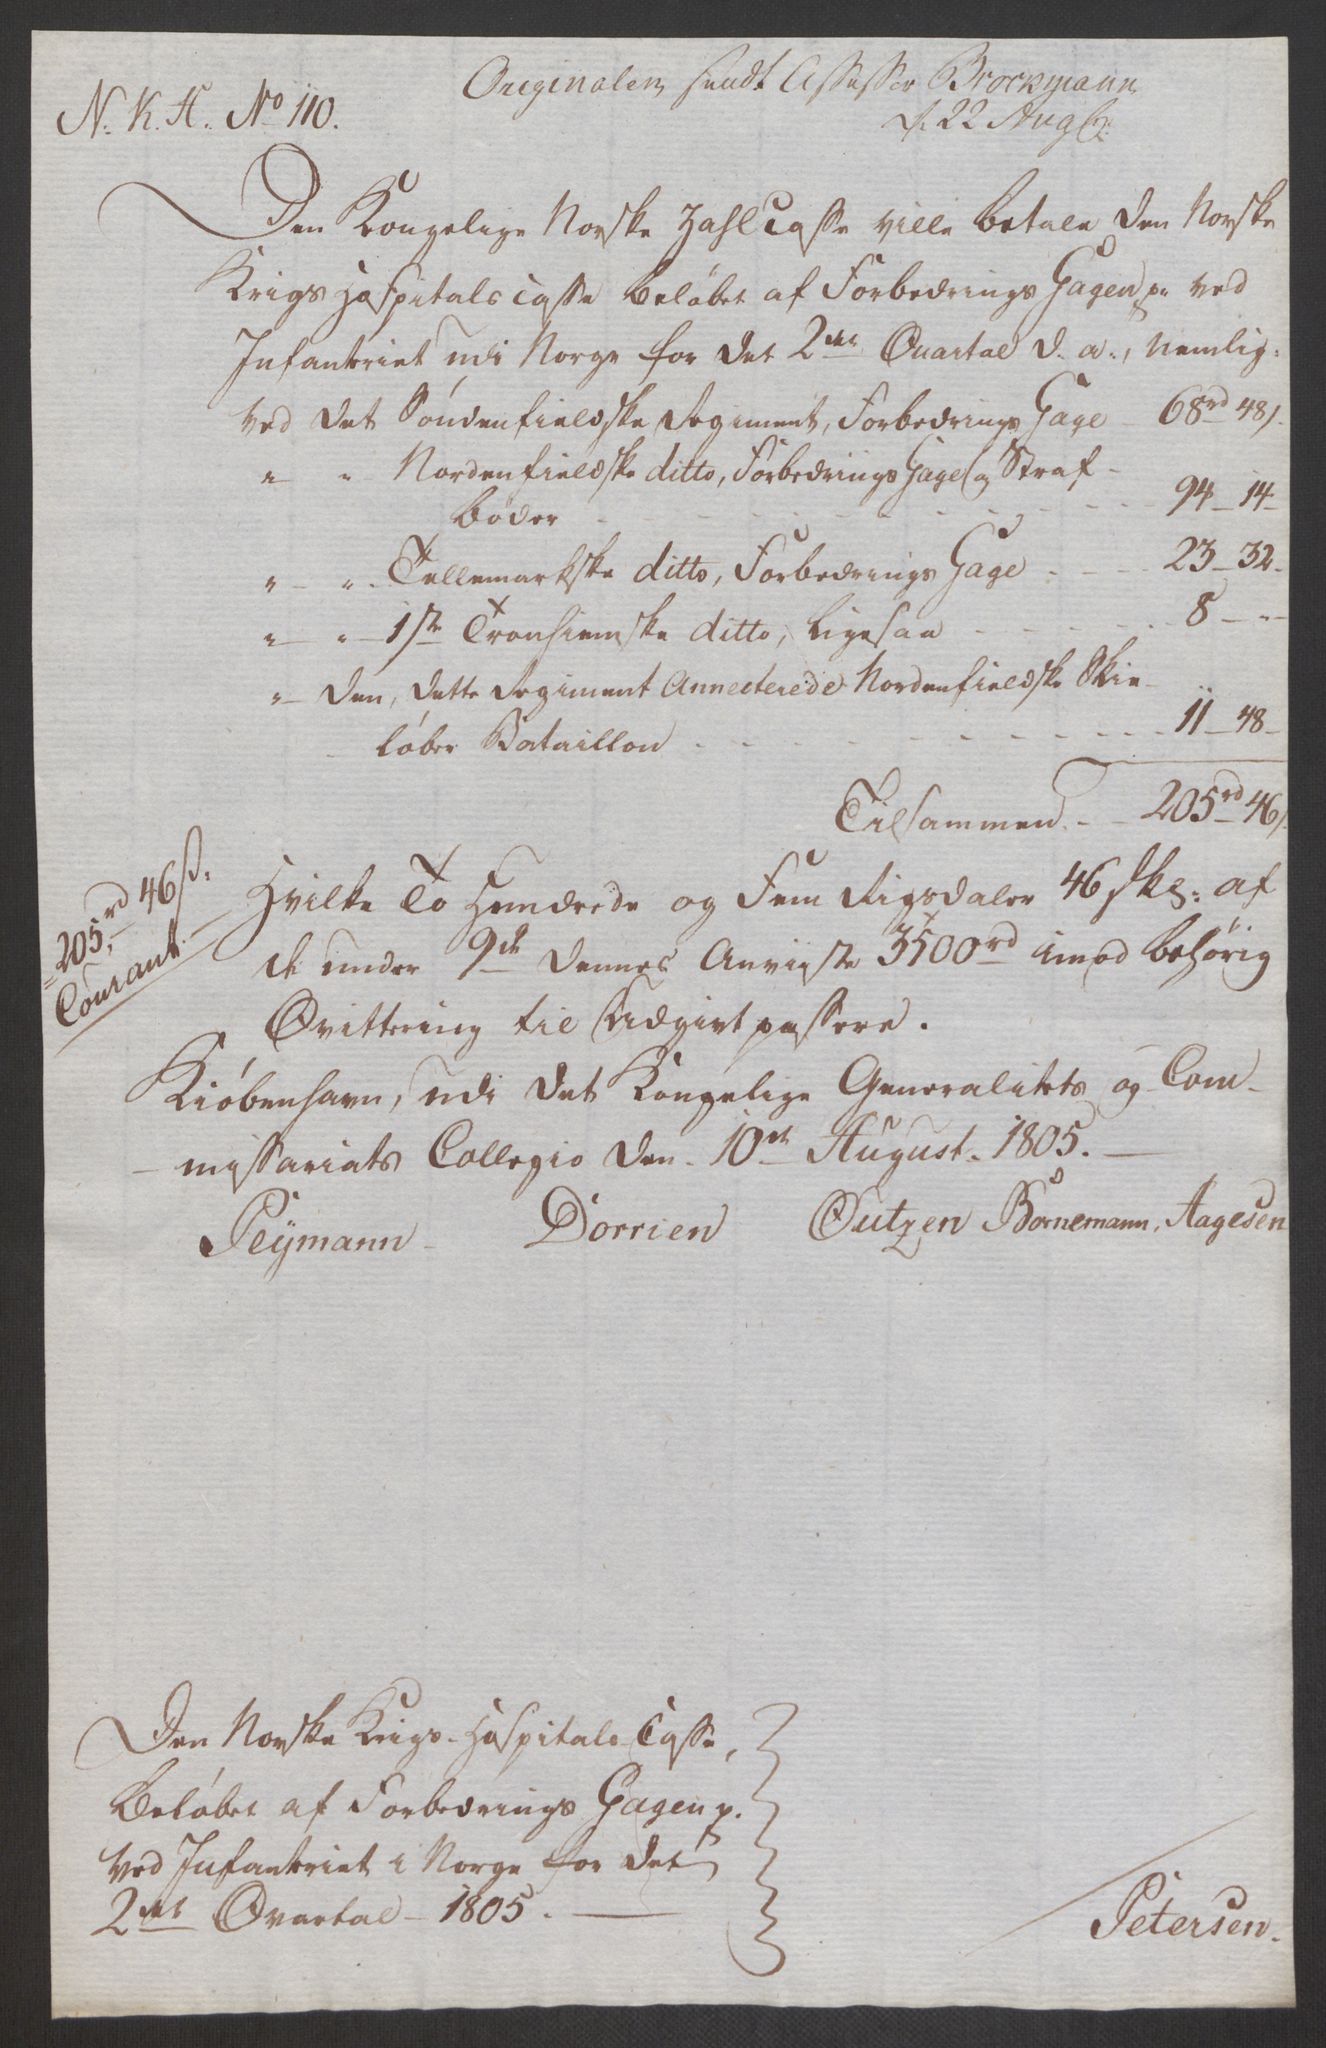 Originalen sendt Assessor Brockmann
d. 22 Aug
N. K. A. No 110.
Den Kongelige Norske Zahlcasse ville betale den Norske
Krigs Hospitals Casse beløbet af Forbedrings Gagen p. ved
Infanteriet udi Norge for det 2det Quartal d. a., nemlig:
Ved det Søndenfieldske Regiment, Forbedrings Gage 68rd 48s.
" " Nordenfieldske ditto, Forbedrings Gage og Straf-
bøder 94 - 14 -
" - " - Tellemarkske ditto, Forbedrings Gage 23 - 32 -
" - " - 1ste Tronhiemske ditto, ligesaa 8 - " -
" - den, dette Regiment Annecterede Nordenfieldske Skie-
løber Bataillon 11 - 48 -
Tilsammen - 205rd 46s.
205rd 46s.
Courant.
Hvilke To Hundrede og Fem Rigsdaler 46 skl: af
de under 9de dennes Anviiste 3500rd imod behørig
Qvittering til Udgivt passere.
Kiøbenhavn, udi det Kongelige Generalitets og Com-
- missariats Collegio den 10de August 1805.
Peymann Dorrien Outzen Bornemann, Aagesen
Den Norske Krigs-Hospitals Casse,
Beløbet af Forbedrings Gagen p.
ved Infanteriet i Norge for det
2det Qvartal - 1805.
Petersen.